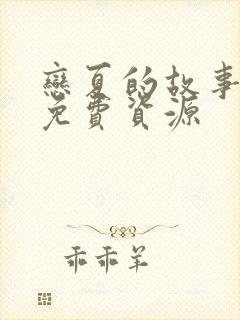 戀夏的故事
免費資源
乖乖羊